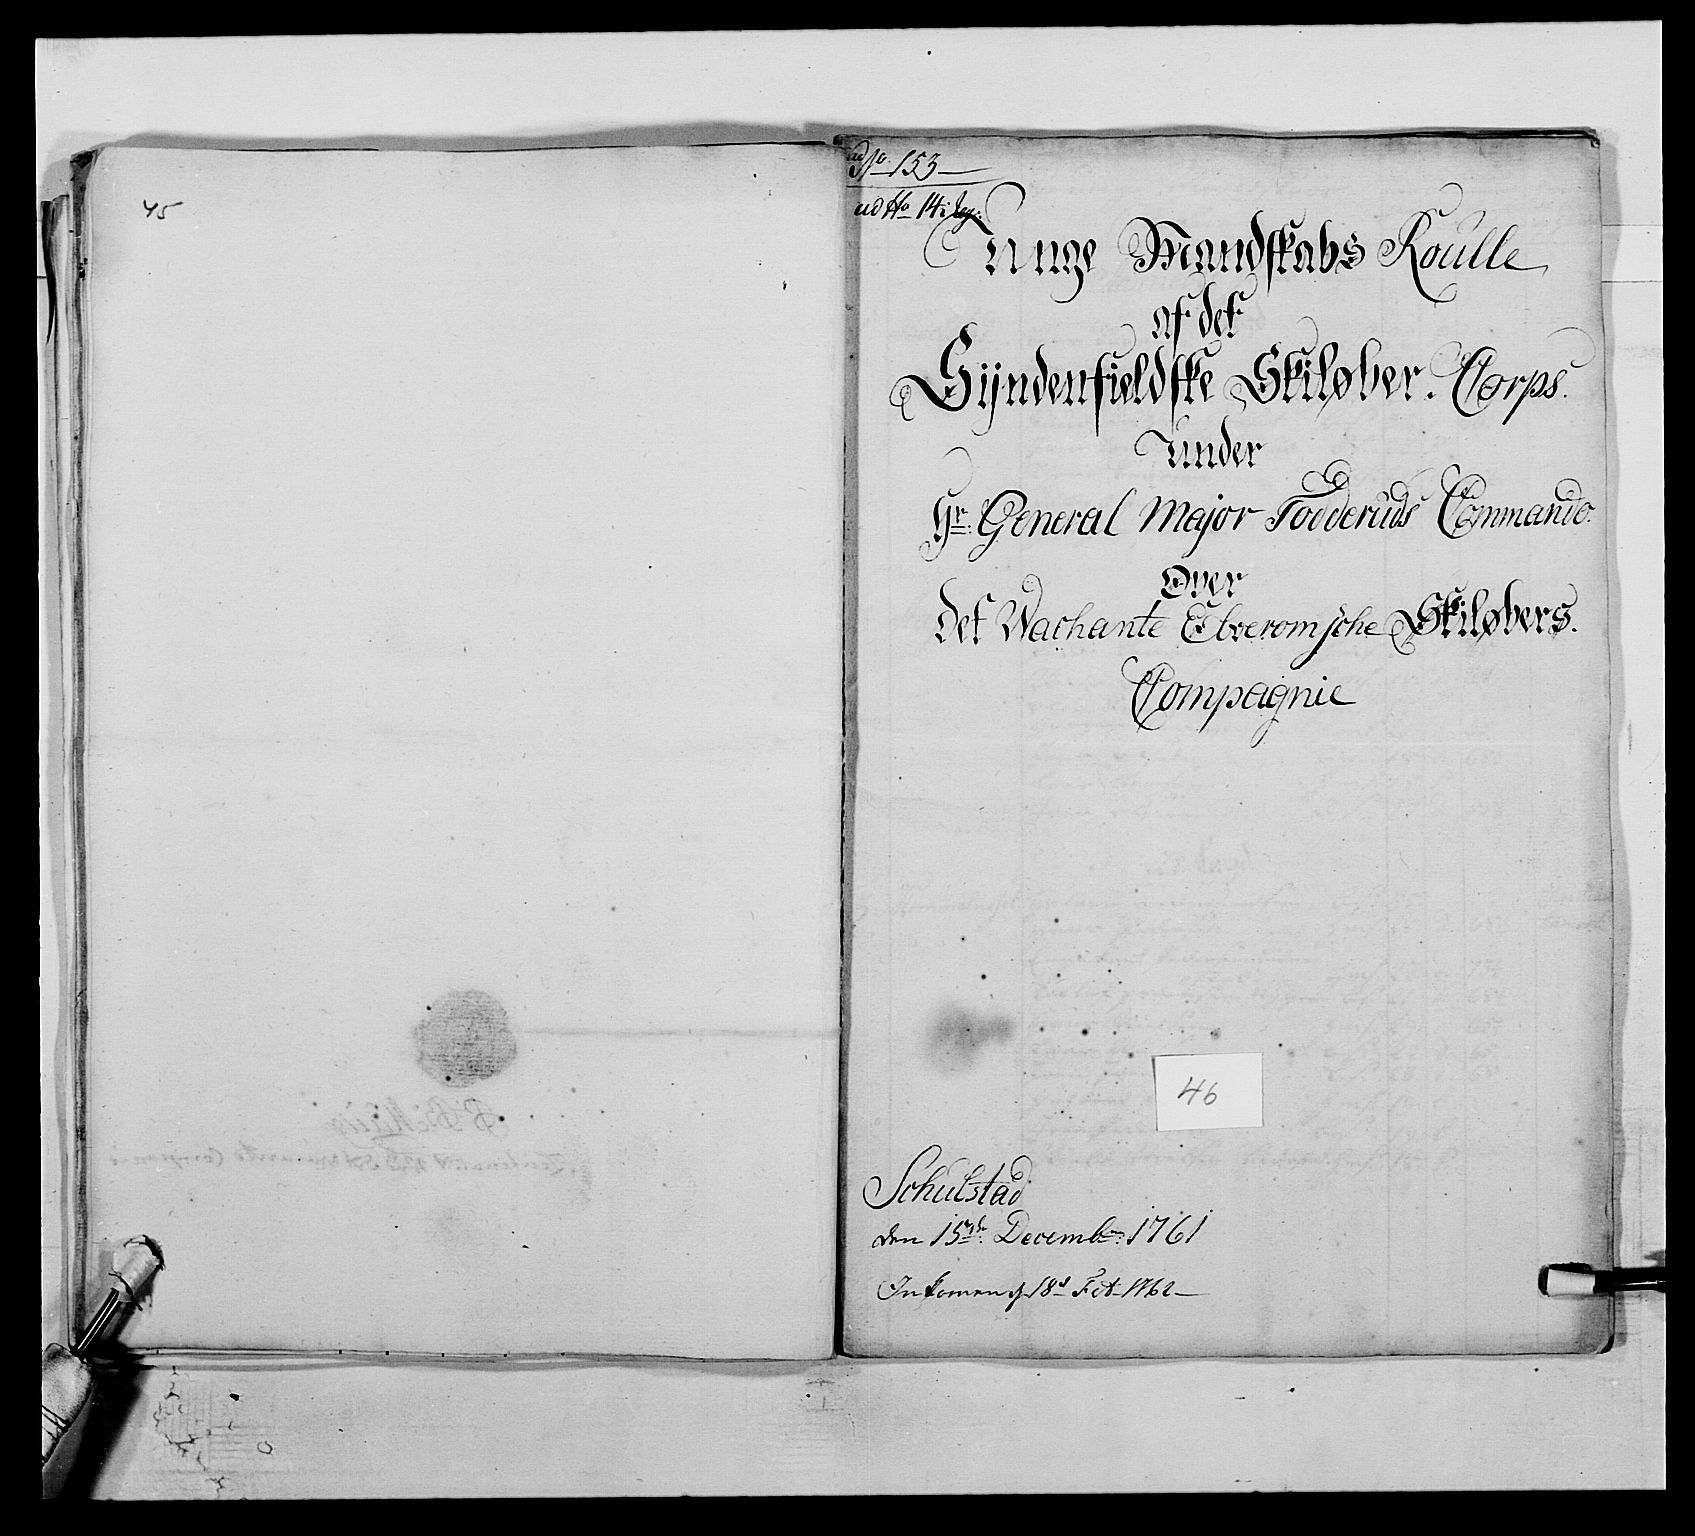 45
ad No 153
ad No 14
Unge Mandskabs Roulle
af det
Sÿndenfieldske Skiløber. Corps.
under
Hr. General Major Todderuds Commando.
Over
det Vachante Elveromsche Skiløbers.
Compagnie
46
Schulstad
den 15de Decembr: 1761
Inkomen d 18d Feb 1762